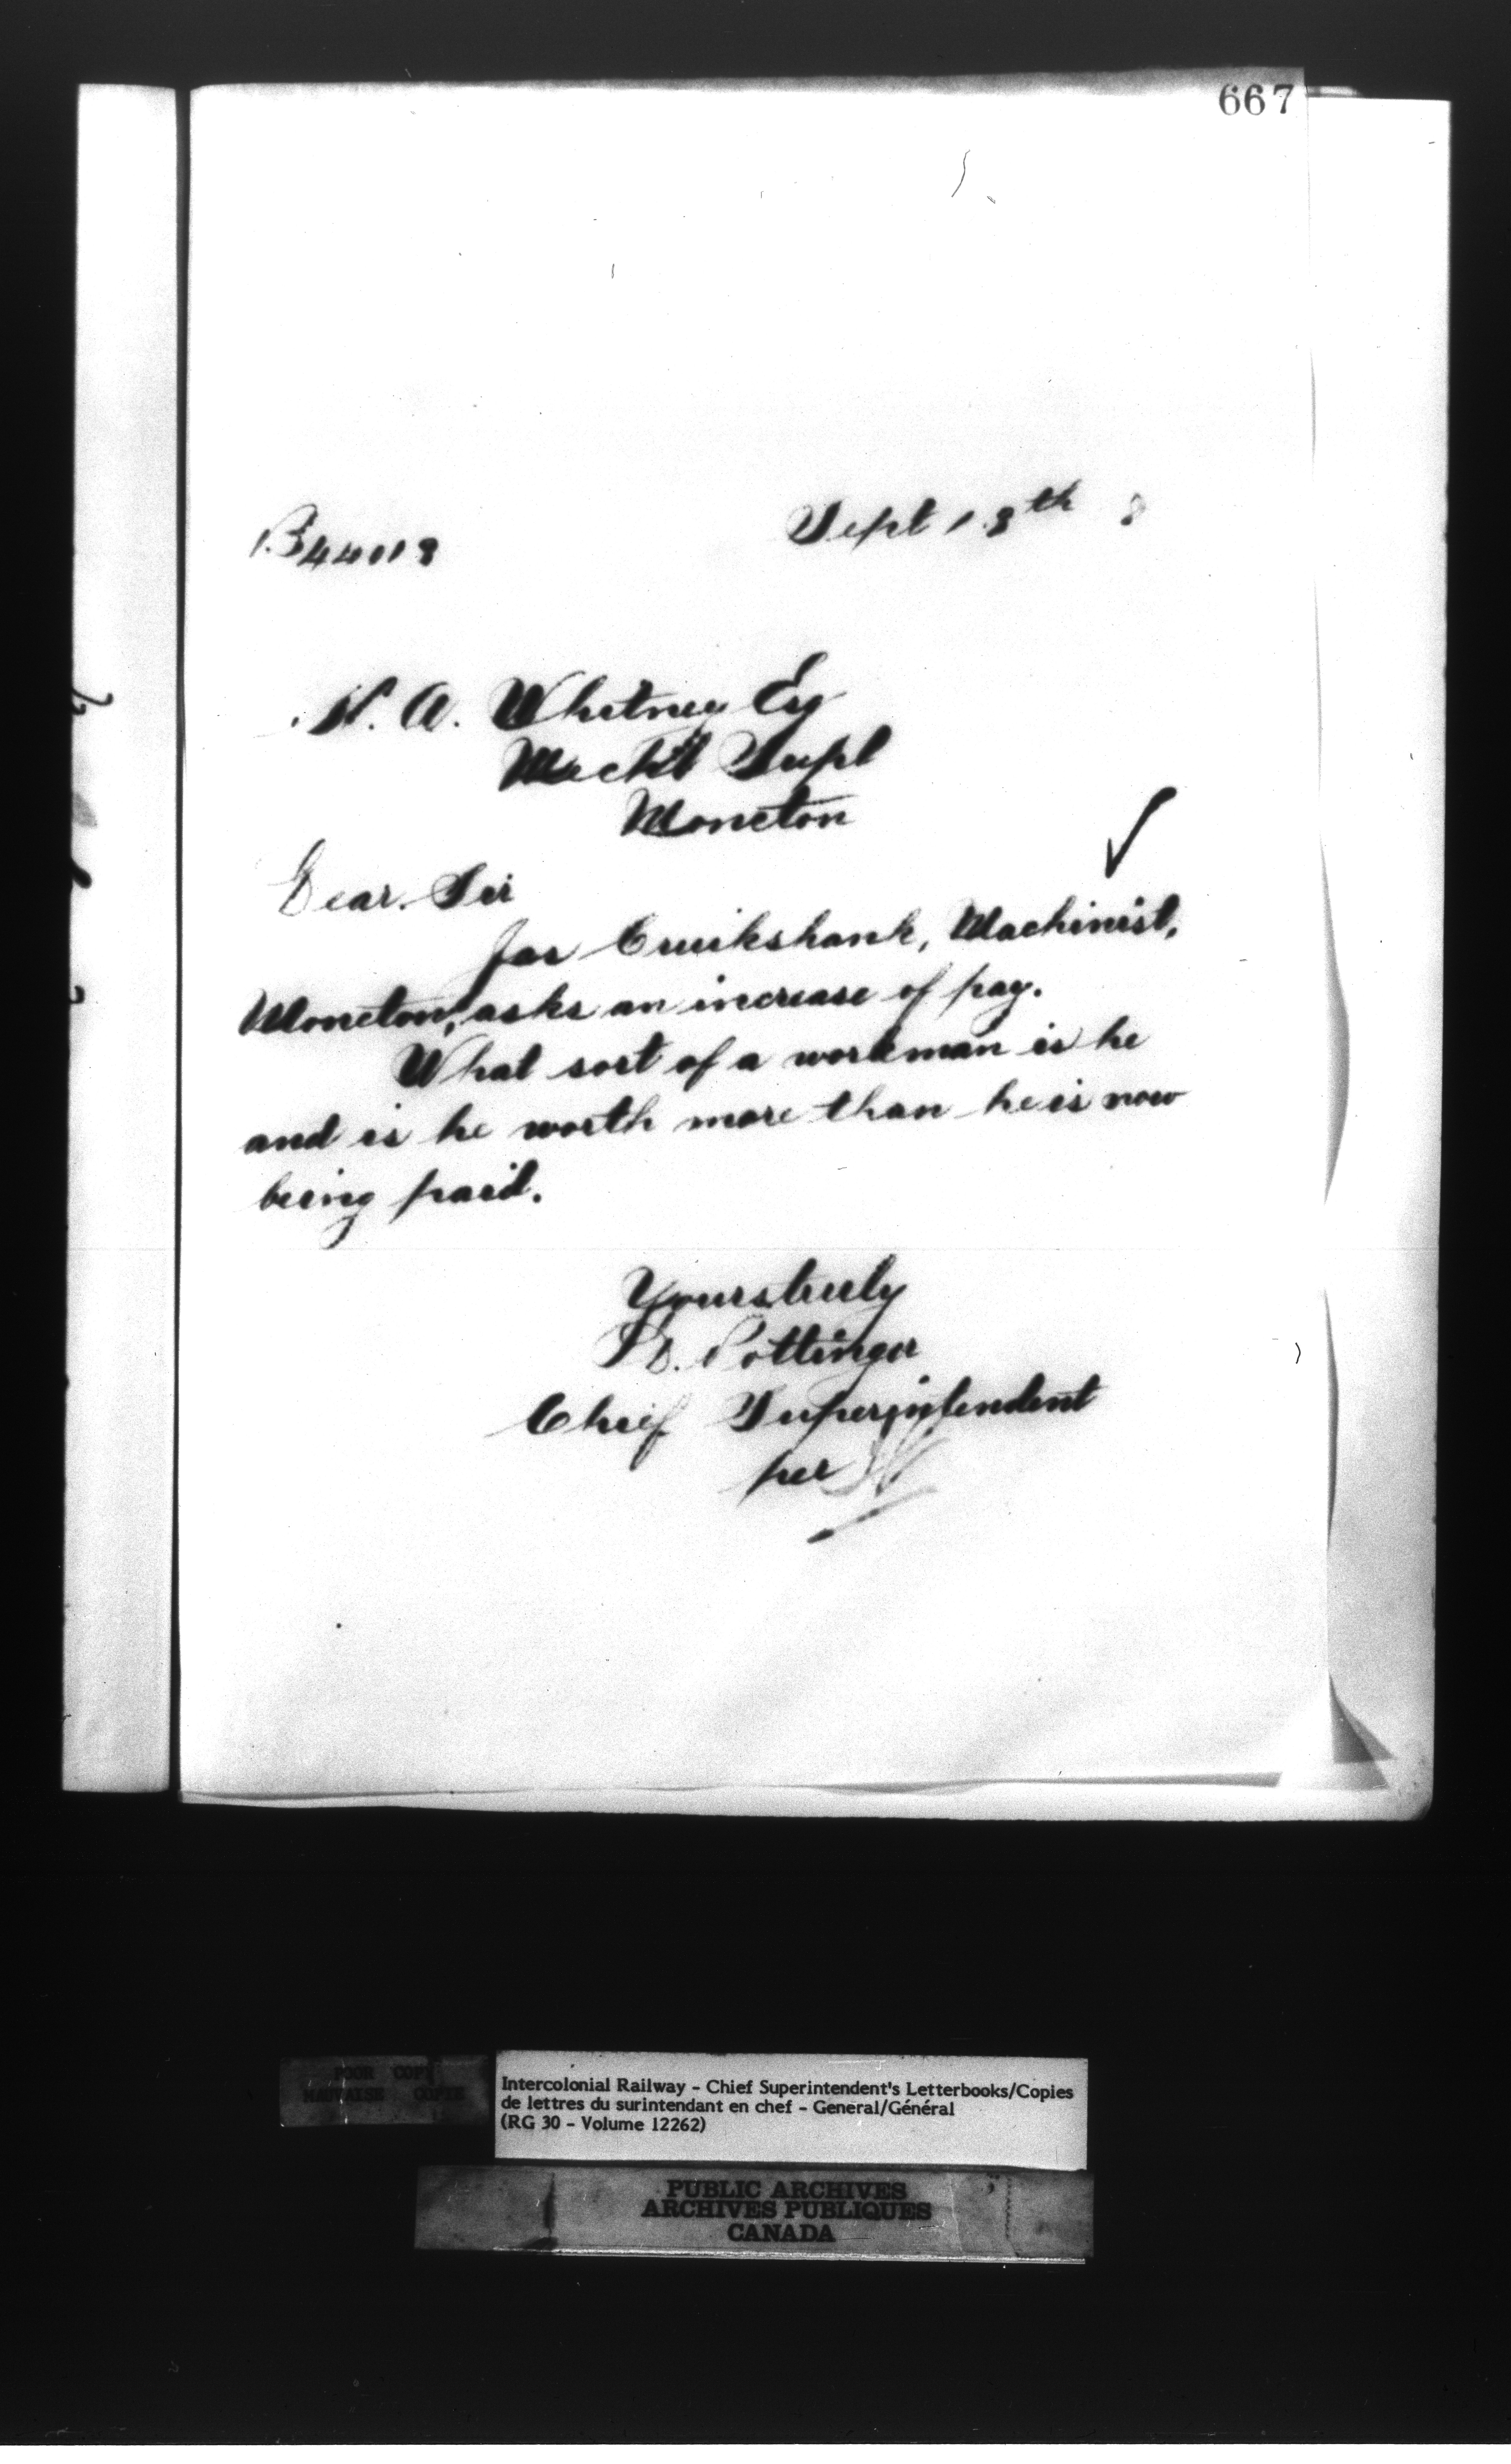 667
Sept 18th 8
B44018
H. A. Whitney Esq
Mech'l Supt
Moncton
Dear Sir
Jas Cruikshank, Machinist,
Moncton, asks an increase of pay.
What sort of a workman is he
and is he worth more than he is now
being paid.
Yours truly
D. Pottinger
Chief Superintendent
per
POOR COPY
MAUVAISE COPIE
Intercolonial Railway - Chief Superintendent's Letterbooks/Copies
de lettres du surintendant en chef - General/Général
(RG 30 - Volume 12262)
PUBLIC ARCHIVES
ARCHIVES PUBLIQUES
CANADA